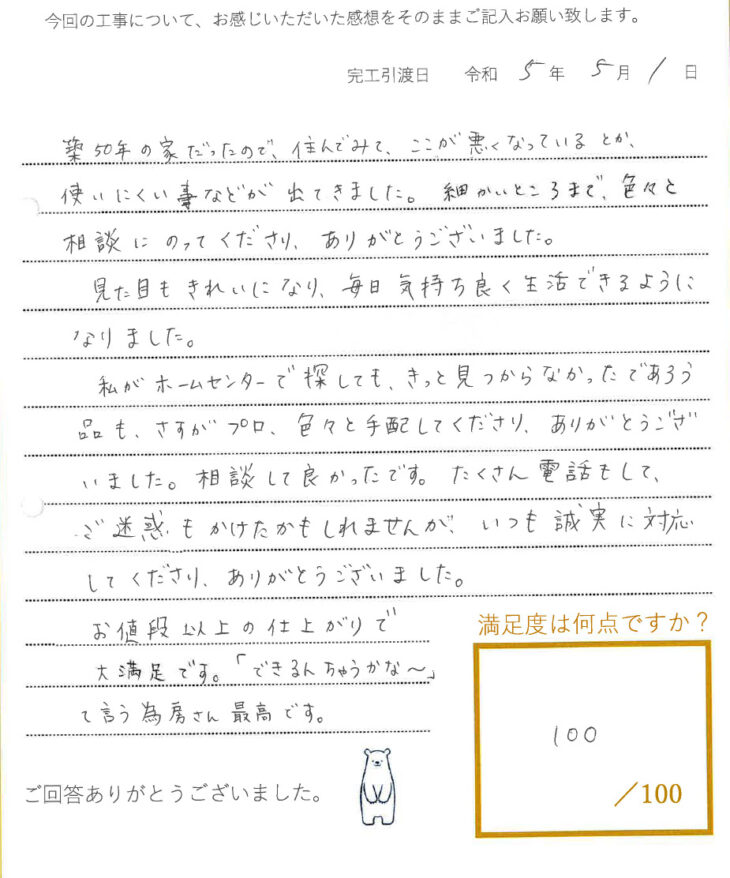 今回の工事について、お感じいただいた感想をそのままご記入お願い致します。
完工引渡日 令和 5 年 5 月 1 日
築50年の家だったので、住んでみて、ここが悪くなっているとか、
使いにくい事などが出てきました。細かいところまで、色々と
相談にのってくださり、ありがとうございました。
見た目もきれいになり、毎日気持ち良く生活できるように
なりました。
私がホームセンターで探しても、きっと見つからなかったであろう
品も、さすがプロ、色々と手配してくださり、ありがとうござ
いました。相談して良かったです。たくさん電話もして、
ご迷惑もかけたかもしれませんが、いつも誠実に対応
してくださり、ありがとうございました。
お値段以上の仕上がりで
大満足です。「できるんちゃうかな〜」
て言う為房さん最高です。
満足度は何点ですか？
100
／100
ご回答ありがとうございました。